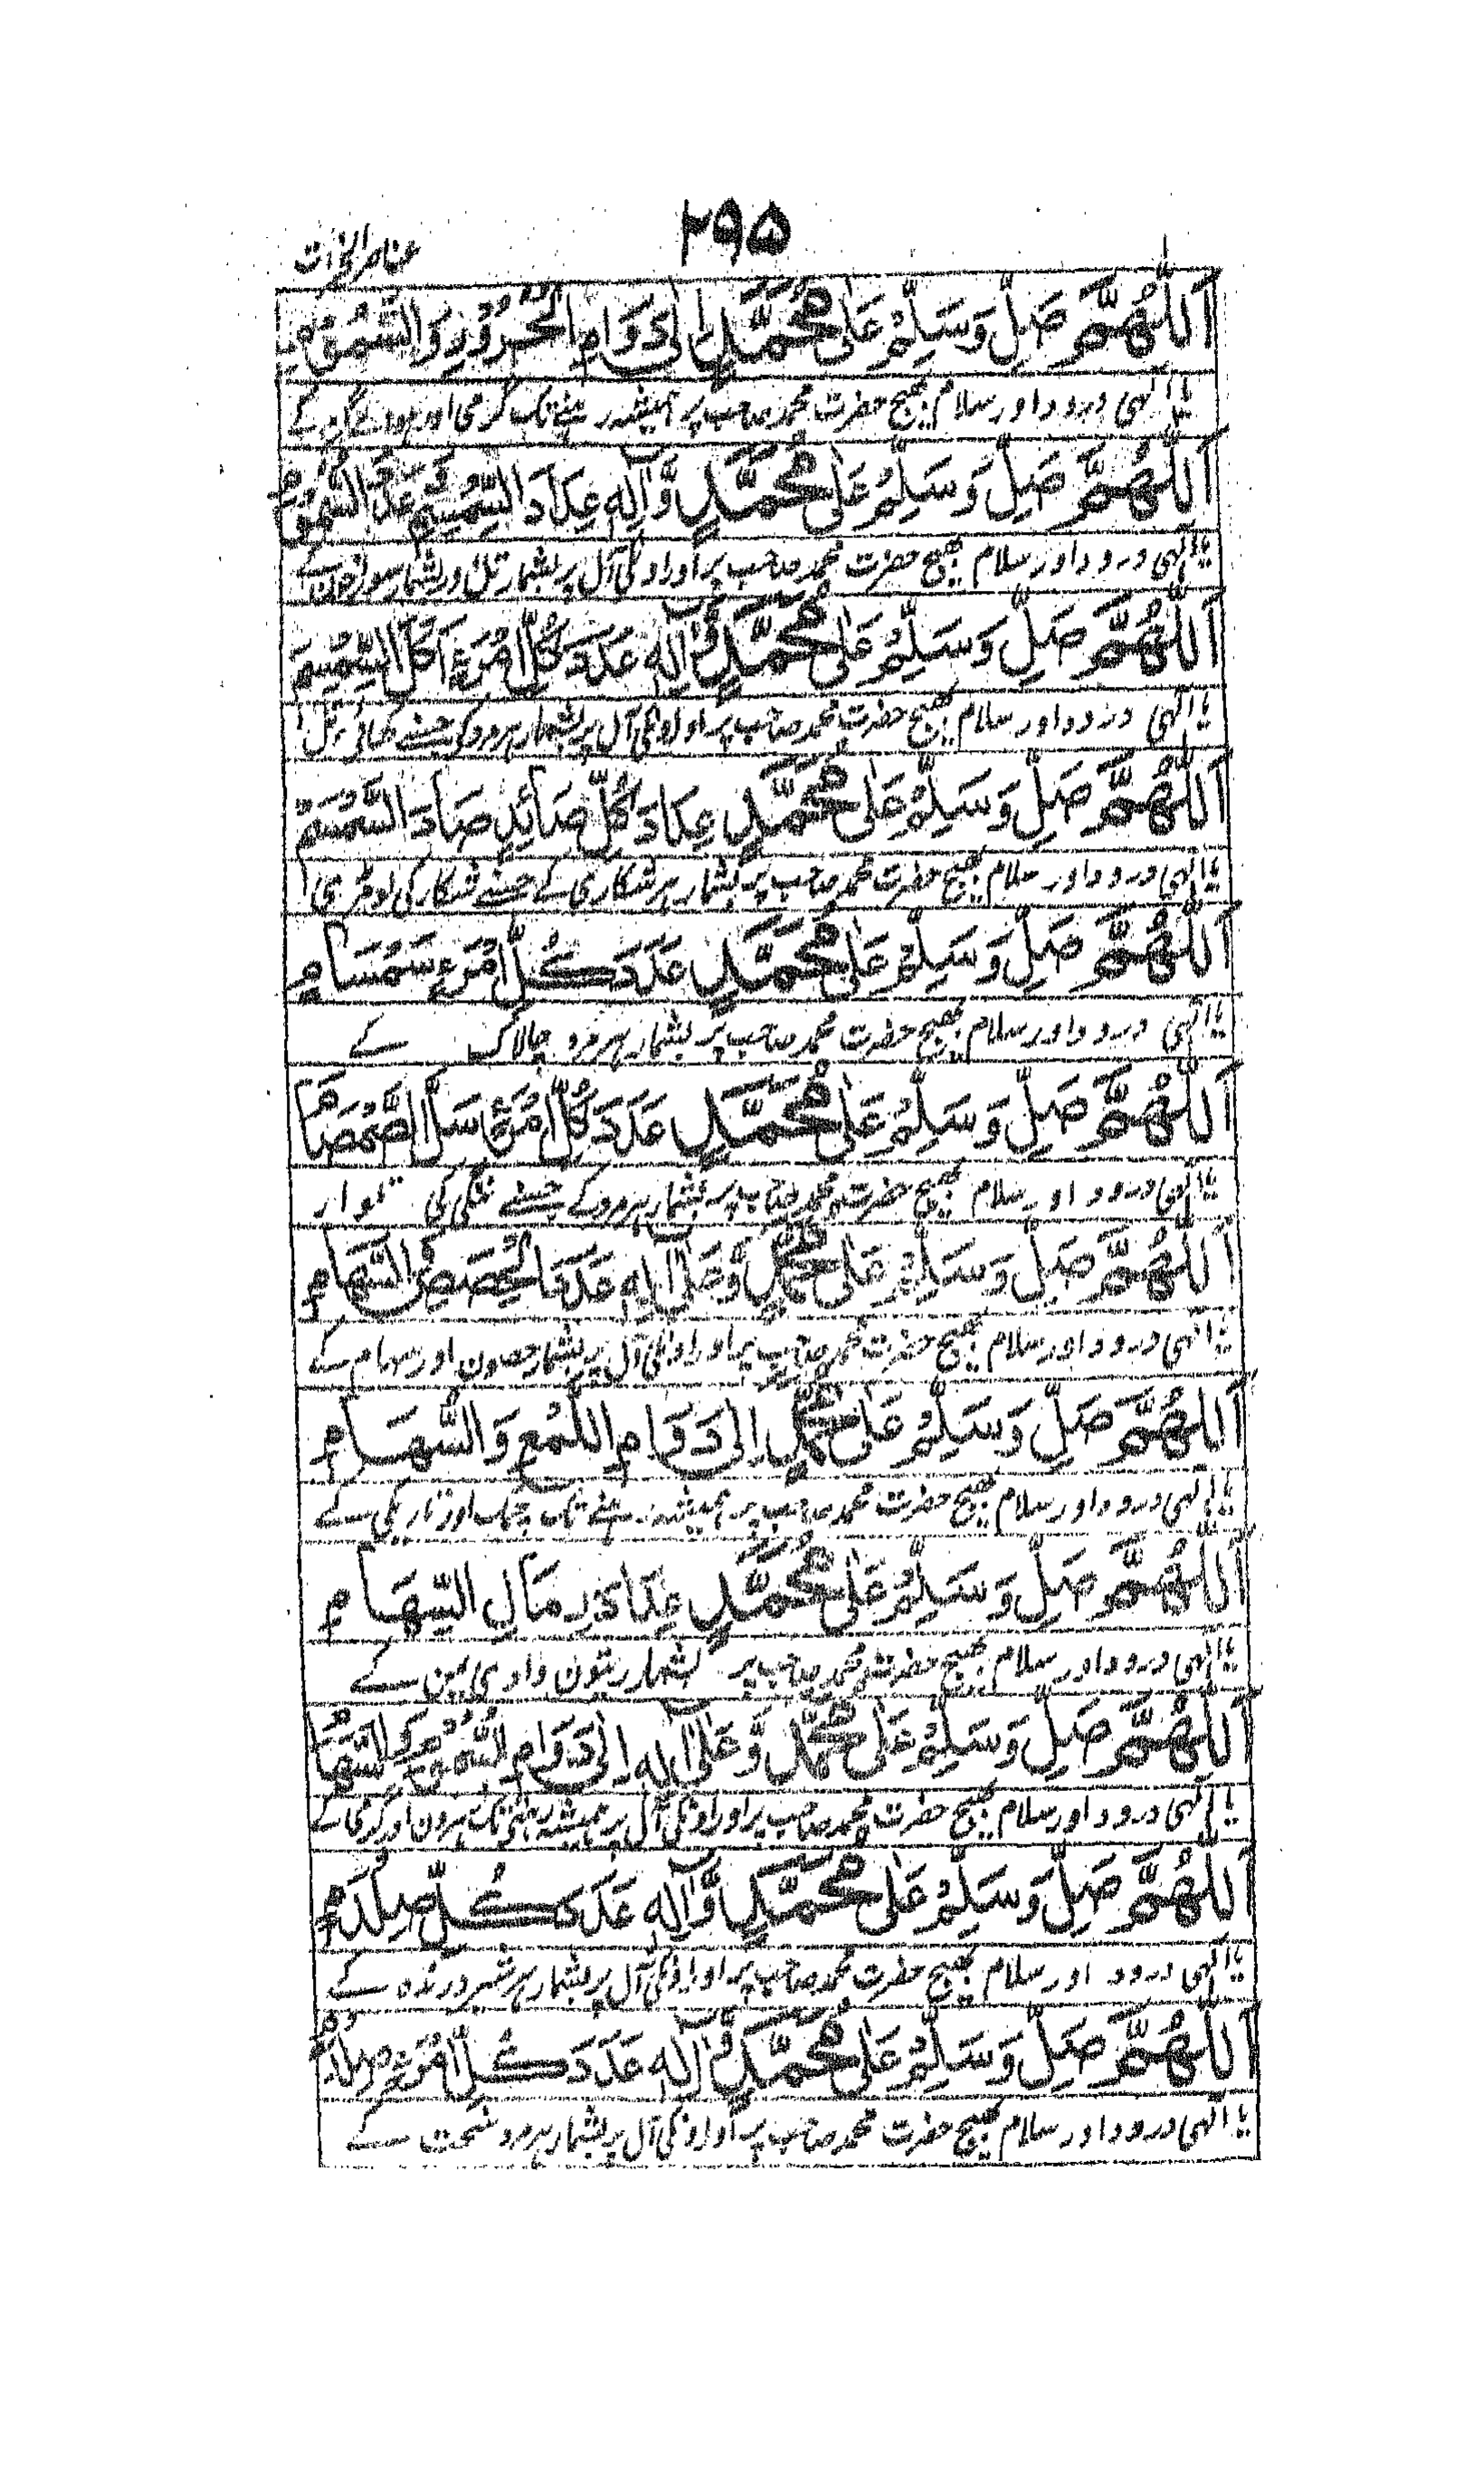 ۲۹۵
عناصر الخيرات
اَللّٰهُمَّ صَلِّ وَسَلِّمْ عَلٰى مُحَمَّدٍ اِلٰى دَوَامِ الْحَرُوْرِ وَالسَّمُوْمِ
یا الٰہی درود اور سلام بھیج حضرت محمد صاحب پر ہمیشہ رہنے تک گرمی اور ہوائے گرم کے
اَللّٰهُمَّ صَلِّ وَسَلِّمْ عَلٰى مُحَمَّدٍ وَّاٰلِهٖ عَدَدَ السِّمْسِمِ وَعَدَدَ السُّمُوْمِ
یا الٰہی درود اور سلام بھیج حضرت محمد صاحب پر اور اونکی آل پر بشمار تل اور بشمار سوراخون کے
اَللّٰهُمَّ صَلِّ وَسَلِّمْ عَلٰى مُحَمَّدٍ وَّاٰلِهٖ عَدَدَ كُلِّ امْرَءٍ اَكَلَ السِّمْسِمَ
یا الٰہی درود اور سلام بھیج حضرت محمد صاحب پر اور اونکی آل پر بشمار ہر مرد کی جسنے کھائی تل
اَللّٰهُمَّ صَلِّ وَسَلِّمْ عَلٰى مُحَمَّدٍ عَدَدَ كُلِّ صَائِدٍ صَادَ السَّمْسَمَ
یا الٰہی درود اور سلام بھیج حضرت محمد صاحب پر بشمار ہر شکاری کے جسنے شکار کی لومڑی
اَللّٰهُمَّ صَلِّ وَسَلِّمْ عَلٰى مُحَمَّدٍ عَدَدَ كُلِّ امْرَءٍ سَمْسَامٍ
یا الٰہی درود اور سلام بھیج حضرت محمد صاحب پر بشمار ہر مرد چالاک کے
اَللّٰهُمَّ صَلِّ وَسَلِّمْ عَلٰى مُحَمَّدٍ عَدَدَ كُلِّ امْرَءٍ سَلَّ الصَّمْصَامَ
یا الٰہی درود اور سلام بھیج حضرت محمد صاحب پر بشمار ہر مرد کے جسنے ننگی کی تلوار
اَللّٰهُمَّ صَلِّ وَسَلِّمْ عَلٰى مُحَمَّدٍ وَّعَلٰى اٰلِهٖ عَدَدَ الْحِصَصِ وَالسِّهَامِ
یا الٰہی درود اور سلام بھیج حضرت محمد صاحب پر اور اونکی آل پر بشمار حصون اور سہام کے
اَللّٰهُمَّ صَلِّ وَسَلِّمْ عَلٰى مُحَمَّدٍ اِلٰى دَوَامِ اللَّمْعِ وَالسُّهَامِ
یا الٰہی درود اور سلام بھیج حضرت محمد صاحب پر ہمیشہ رہنے تک چمک اور تاریکی کے
اَللّٰهُمَّ صَلِّ وَسَلِّمْ عَلٰى مُحَمَّدٍ عَدَدَ رِمَالِ السِّهَامِ
یا الٰہی درود اور سلام بھیج حضرت محمد صاحب پر بشمار ریتون وادی یمن کے
اَللّٰهُمَّ صَلِّ وَسَلِّمْ عَلٰى مُحَمَّدٍ وَّعَلٰى اٰلِهٖ اِلٰى دَوَامِ وَالسَّهَامِ
یا الٰہی درود اور سلام بھیج حضرت محمد صاحب پر اور اونکی آل پر ہمیشہ رہنی تک اور گرمی کے
اَللّٰهُمَّ صَلِّ وَسَلِّمْ عَلٰى مُحَمَّدٍ وَّاٰلِهٖ عَدَدَ كُلِّ صِلْدَمٍ
یا الٰہی درود اور سلام بھیج حضرت محمد صاحب پر اور اونکی آل پر بشمار ہر شیر درندہ کے
اَللّٰهُمَّ صَلِّ وَسَلِّمْ عَلٰى مُحَمَّدٍ وَّاٰلِهٖ عَدَدَ كُلِّ امْرَءٍ
یا الٰہی درود اور سلام بھیج حضرت محمد صاحب پر اور اونکی آل پر بشمار ہر مرد سخت کے